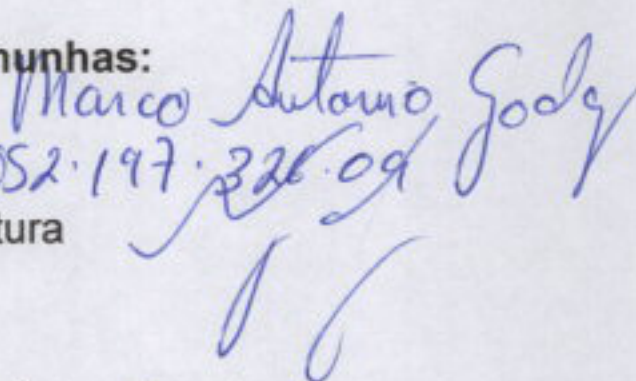 munhas:
Marco Antonio Godoy
052.197.326.09
tura